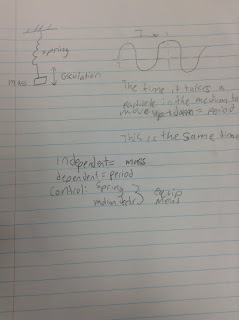 spring
mass
Oscillation
The time it takes a
particle in the medium to
move up + down = period
This is the same time
independent = mass
dependent = period
control: Spring
equip
ment